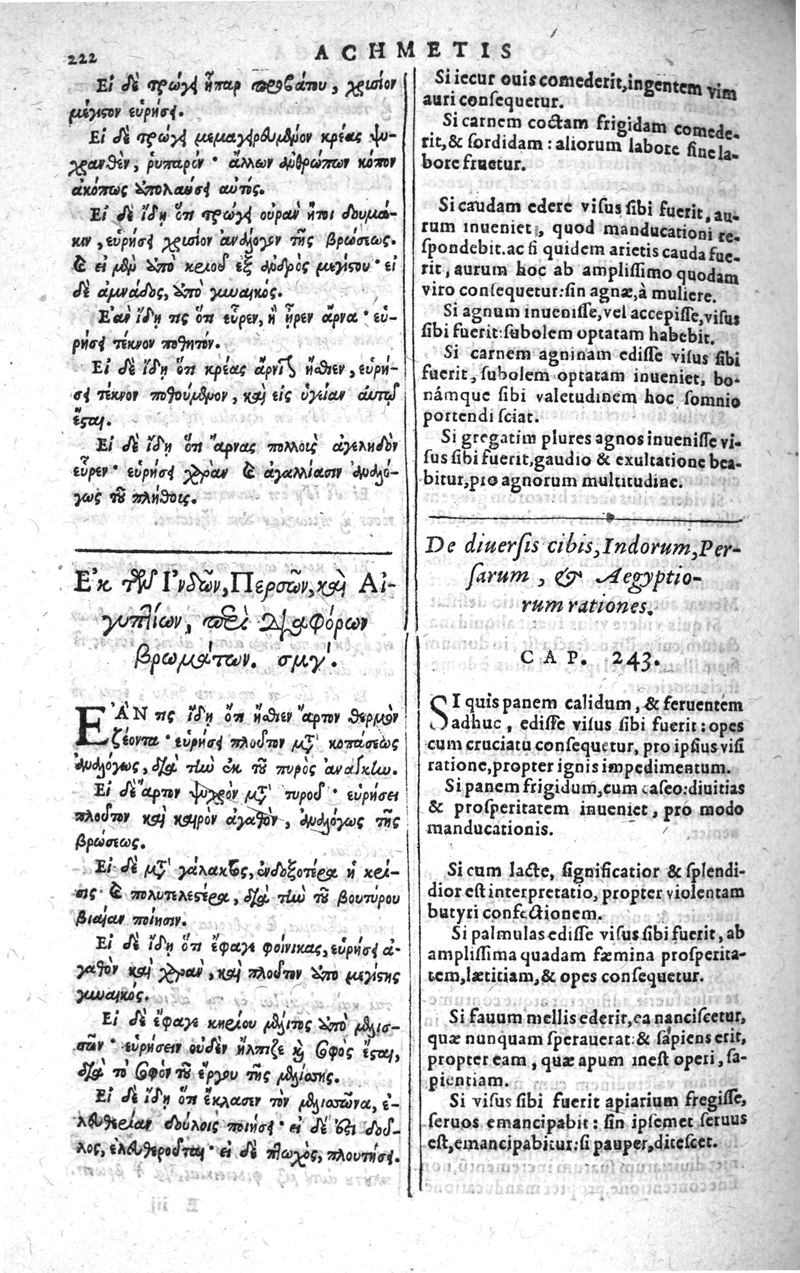 222
ACHMETIS
Εἰ δὲ τρώγῃ ἧπαρ προβάτου, χρυσίον
μέγιστον εὑρήσει.
Εἰ δὲ τρώγῃ μεμαγειρευμένον κρέας ψυ-
χρανθὲν, ῥυπαρόν· ἄλλων ἀνθρώπων κόπον
ἀκόπως ἀπολαύσει αὐτός.
Εἰ δὲ ἴδῃ ὅτι τρώγῃ οὐρὰν ἤτοι δουμά-
κιν, εὑρήσει χρυσίον ἀνάλογον τῆς βρώσεως.
καὶ εἰ μὲν ἀπὸ κριοῦ ἐξ ἀνδρὸς μεγίστου· εἰ
δὲ ἀμνάδος, ἀπὸ γυναικός.
Ἐὰν ἴδῃ τις ὅτι εὗρεν, ἢ ἦρεν ἄρνα· εὑ-
ρήσει τέκνον ποθητόν.
Εἰ δὲ ἴδῃ ὅτι κρέας ἀρνὸς ἤσθιεν, εὑρή-
σει τέκνον ποθούμενον, καὶ εἰς ὑγίαν αὐτοῦ
ἔσται.
Εἰ δὲ ἴδῃ ὅτι ἄρνας πολλοὺς ἀγεληδὸν
εὗρεν· εὑρήσει χαρὰν καὶ ἀγαλλίασιν ἀναλό-
γως τοῦ πλήθους.
Ἐκ τῶν Ἰνδῶν, Περσῶν, καὶ Αἰ-
γυπτίων, περὶ διαφόρων
βρωμάτων. σμγʹ.
ΕΑΝ τις ἴδῃ ὅτι ἤσθιεν ἄρτον θερμὸν
ζέοντα· εὑρήσει πλοῦτον μετὰ κοπάσεως
ἀναλόγως, διὰ τὴν ἐκ τοῦ πυρὸς ἀνάγκην.
Εἰ δὲ ἄρτον ψυχρὸν μετὰ τυροῦ· εὑρήσει
πλοῦτον καὶ καιρὸν ἀγαθὸν, ἀναλόγως τῆς
βρώσεως.
Εἰ δὲ μετὰ γάλακτος, ἐνδοξοτέρα ἡ κρί-
σις καὶ πολυτελεστέρα, διὰ τὴν τοῦ βουτύρου
βιαίαν ποίησιν.
Εἰ δὲ ἴδῃ ὅτι ἔφαγε φοίνικας, εὑρήσει ἀ-
γαθὸν καὶ χαρὰν, καὶ πλοῦτον ἀπὸ μεγίστης
γυναικός.
Εἰ δὲ ἔφαγε κηρίου μέλιτος ἀπὸ μελισ-
σῶν· εὑρήσειν οὐδὲν ἤλπιζε καὶ σοφὸς ἔσται,
διὰ τὸ σοφὸν τοῦ ἔργου τῆς μελίσσης.
Εἰ δὲ ἴδῃ ὅτι ἔκλασεν τὸν μελισσῶνα, ἐ-
λευθερίαν δούλοις ποιήσει· εἰ δὲ ἔστι δοῦ-
λος, ἐλευθεροῦται· εἰ δὲ πτωχὸς, πλουτήσει.
Si iecur ouis comederit, ingentem vim
auri consequetur.
Si carnem coctam frigidam comede-
rit, & sordidam: aliorum labore sine la-
bore fruetur.
Si caudam edere visus sibi fuerit, au-
rum inueniet, quod manducationi re-
spondebit. ac si quidem arietis cauda fue-
rit, aurum hoc ab amplissimo quodam
viro consequetur: sin agnæ, à muliere.
Si agnum inuenisse, vel accepisse, visus
sibi fuerit: subolem optatam habebit.
Si carnem agninam edisse visus sibi
fuerit, subolem optatam inueniet, bo-
námque sibi valetudinem hoc somnio
portendi sciat.
Si gregatim plures agnos inuenisse vi-
sus sibi fuerit, gaudio & exultatione bea-
bitur, pro agnorum multitudine.
De diuersis cibis, Indorum, Per-
sarum, & Aegyptio-
rum rationes.
CAP. 243.
SI quis panem calidum, & feruentem
adhuc, edisse visus sibi fuerit: opes
cum cruciatu consequetur, pro ipsius visi
ratione, propter ignis impedimentum.
Si panem frigidum, cum caseo: diuitias
& prosperitatem inueniet, pro modo
manducationis.
Si cum lacte, significatior & splendi-
dior est interpretatio, propter violentam
butyri confectionem.
Si palmulas edisse visus sibi fuerit, ab
amplissima quadam fæmina prosperita-
tem, lætitiam, & opes consequetur.
Si fauum mellis ederit, ea nanciscetur,
quæ nunquam sperauerat: & sapiens erit,
propter eam, quæ apum inest operi, sa-
pientiam.
Si visus sibi fuerit apiarium fregisse,
seruos emancipabit: sin ipsemet seruus
est, emancipabitur: si pauper, ditescet.